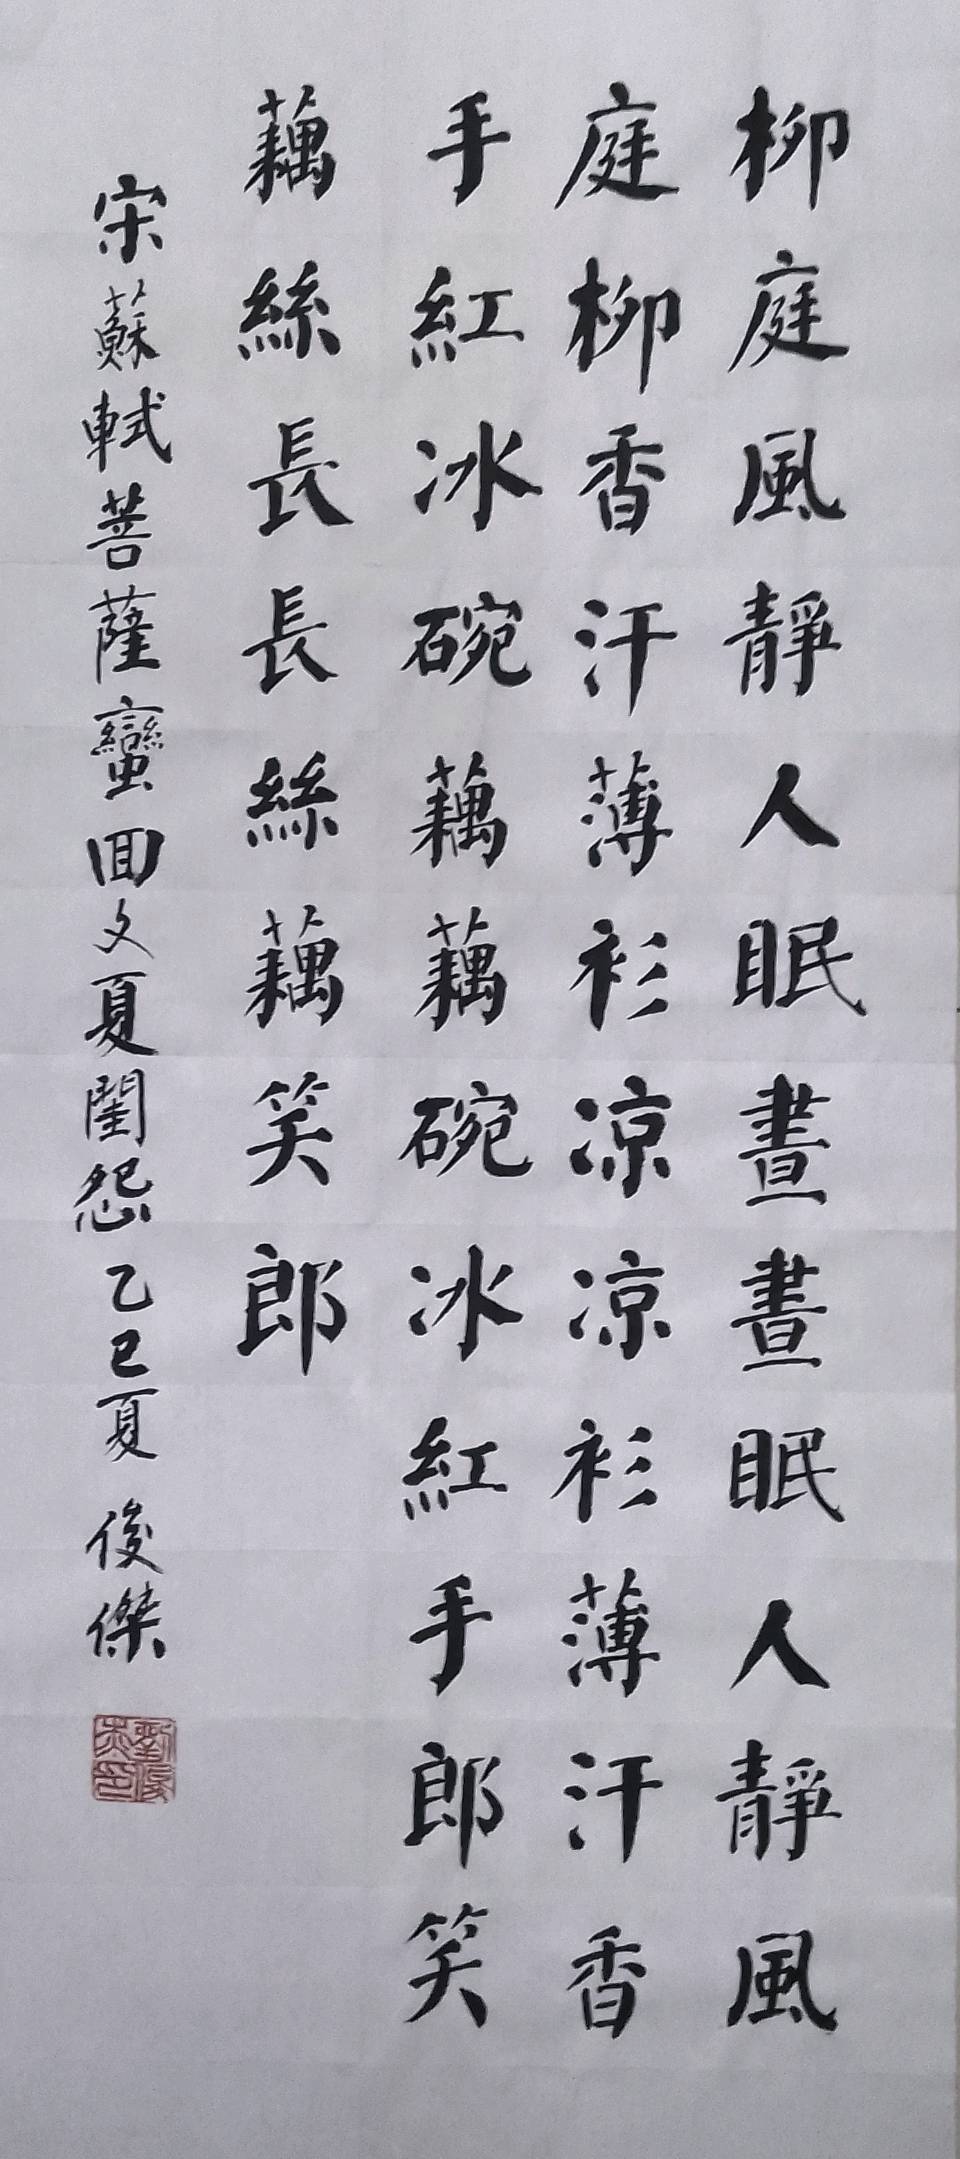 柳庭風靜人眠晝晝眠人靜風
庭柳香汗薄衫凉凉衫薄汗香
手紅冰碗藕藕碗冰紅手郎笑
藕絲長長絲藕笑郎
宋蘇軾菩薩蠻回文夏閨怨乙巳夏 俊傑